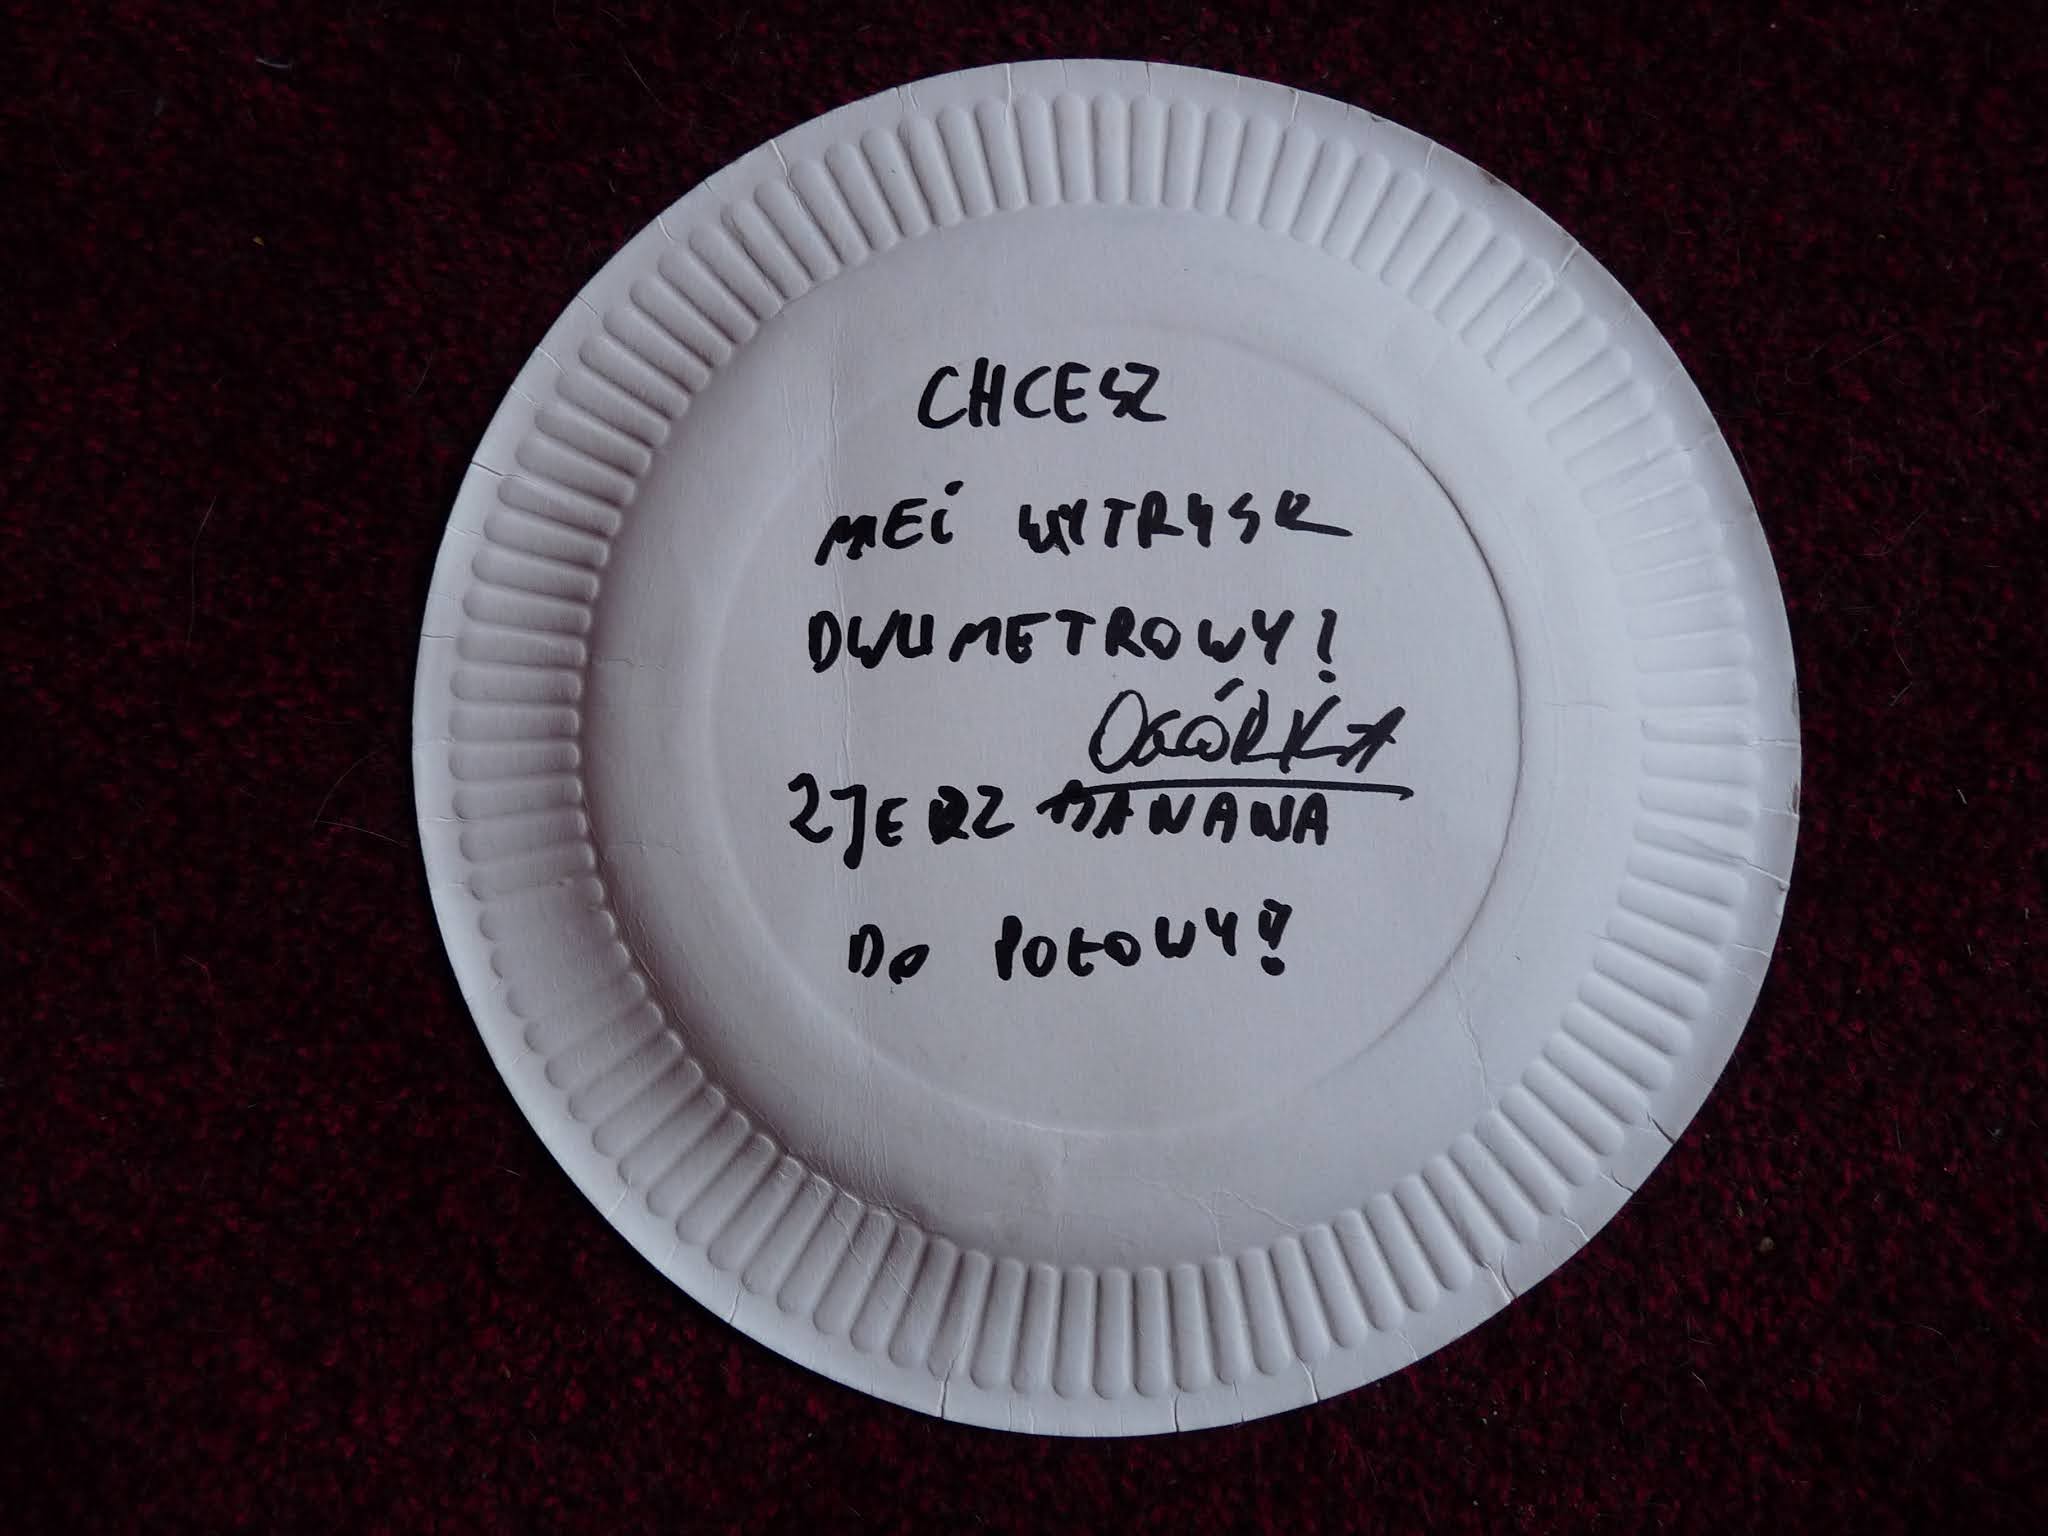 CHCESZ
MEĆ WYTRYSK
DWUMETROWY!
OGÓRKA
ZJERZ BANANA
DO POŁOWY!!